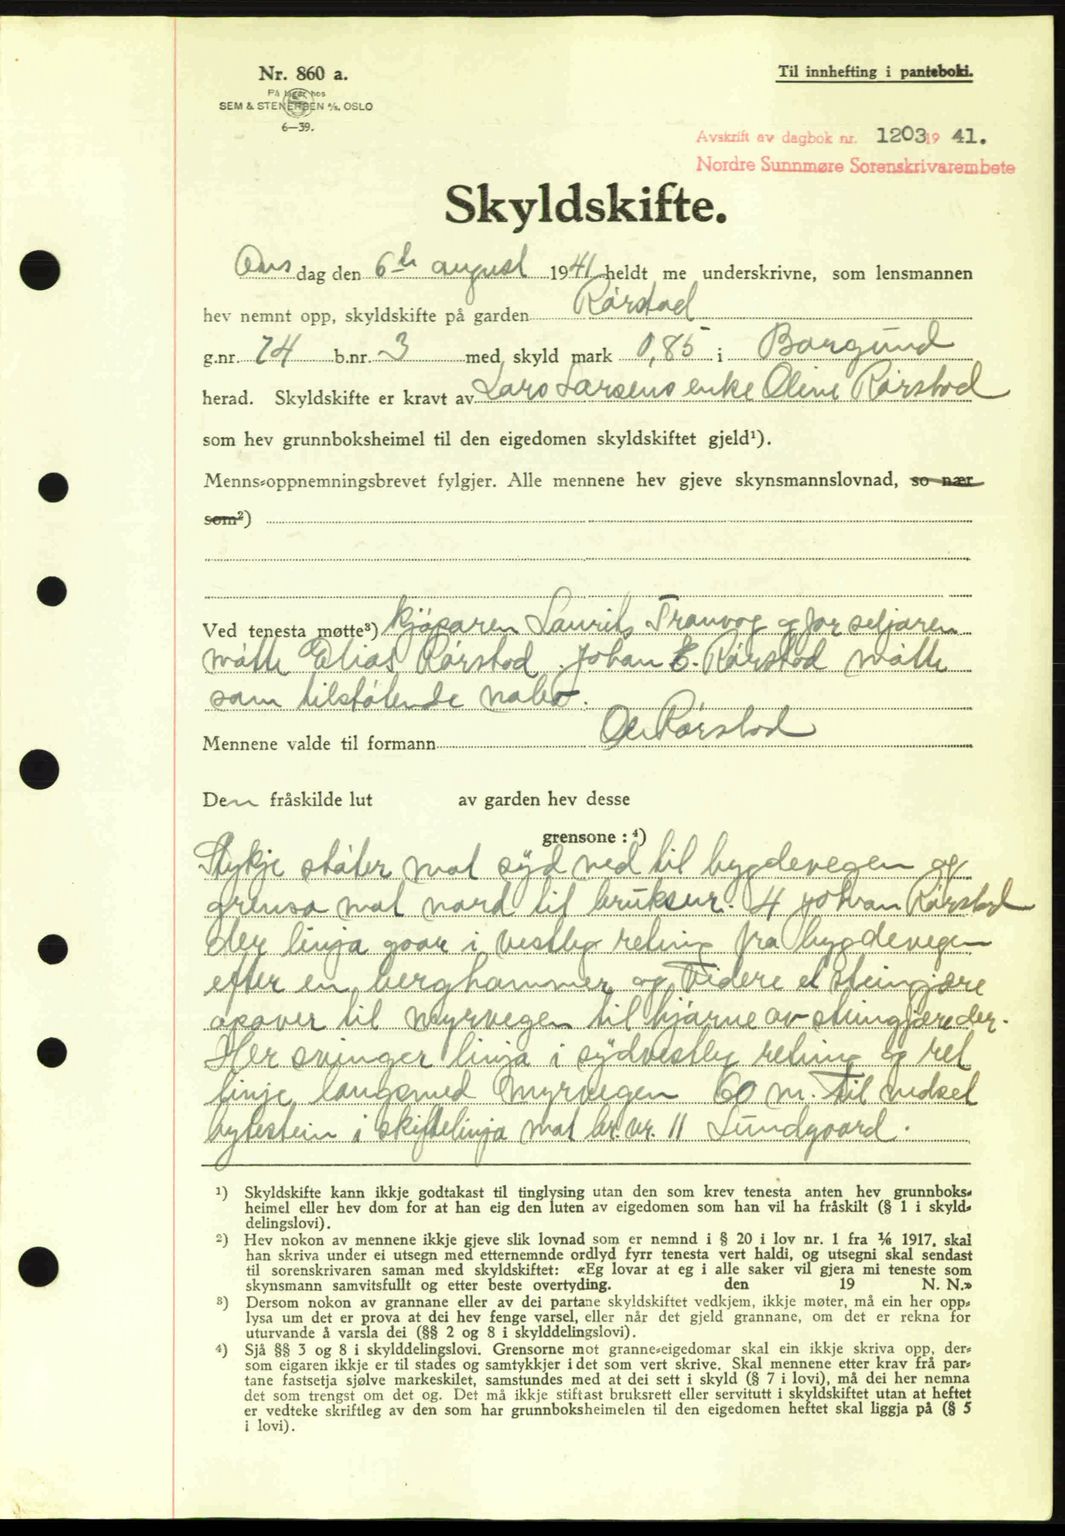 Nr. 860 a.
Til innhefting i panteboki.
På lager hos
SEM & STENERSEN A/S. OSLO
6—39.
Avskrift av dagbok nr. 1203 19 41.
Nordre Sunnmøre Sorenskrivarembete
Skyldskifte.
Ons dag den 6te august 1941 heldt me underskrivne, som lensmannen
hev nemnt opp, skyldskifte på garden Rørstad
g.nr. 74 b.nr. 3 med skyld mark 0,85 i Borgund
herad. Skyldskifte er kravt av Lars Larsens enke Oline Rørstad
som hev grunnboksheimel til den eigedomen skyldskiftet gjeld¹).
Menns-oppnemningsbrevet fylgjer. Alle mennene hev gjeve skynsmannslovnad, so nær
som²)
Ved tenesta møtte³) kjøparen Laurits Tranvog og for seljaren
møtte Elias Rørstad. Johan E. Rørstad møtte
som tilstøtende nabo.
Mennene valde til formann Ole Rørstad
Den fråskilde lut av garden hev desse
grensone : ⁴)
Stykje støter mot syd ned til bygdevegen og
grensa mot nord til bruksnr. 4 Johan Rørstad
der linja gaar i vestleg retning fra bygdevegen
efter en berghammer og videre et steingjære
opover til myrvegen til hjørne av steingjære der.
Her svinger linja i sydvestleg retning og ret
linje langsmed myrvegen 60 m. til nedset
bytestein i skiftelinja mot br.nr. 11 Lundgaard.
¹) Skyldskifte kann ikkje godtakast til tinglysing utan den som krev tenesta anten hev grunnboks-
heimel eller hev dom for at han eig den luten av eigedomen som han vil ha fråskilt (§ 1 i skyld-
delingslovi).
²) Hev nokon av mennene ikkje gjeve slik lovnad som er nemnd i § 20 i lov nr. 1 fra ⅙ 1917, skal
han skriva under ei utsegn med etternemnde ordlyd fyrr tenesta vert haldi, og utsegni skal sendast
til sorenskrivaren saman med skyldskiftet: «Eg lovar at eg i alle saker vil gjera mi teneste som
skynsmann samvitsfullt og etter beste overtyding. den 19 N. N.»
³) Dersom nokon av grannane eller av dei partane skyldskiftet vedkjem, ikkje møter, må ein her opp-
lysa um det er prova at dei hev fenge varsel, eller når det gjeld grannane, om det er rekna for
uturvande å varsla dei (§§ 2 og 8 i skylddelingslovi).
⁴) Sjå §§ 3 og 8 i skylddelingslovi. Grensorne mot granne-eigedomar skal ein ikkje skriva opp, der-
som eigaren ikkje er til stades og samtykkjer i det som vert skrive. Skal mennene etter krav frå par-
tane fastsetja sjølve markeskilet, samstundes med at dei sett i skyld (§ 7 i lovi), må dei her nemna
det som trengst om det og. Det må ikkje stiftast bruksrett eller servitutt i skyldskiftet utan at heftet
er vedteke skriftleg av den som har grunnboksheimelen til den eigedomen heftet skal liggja på (§ 5
i lovi).